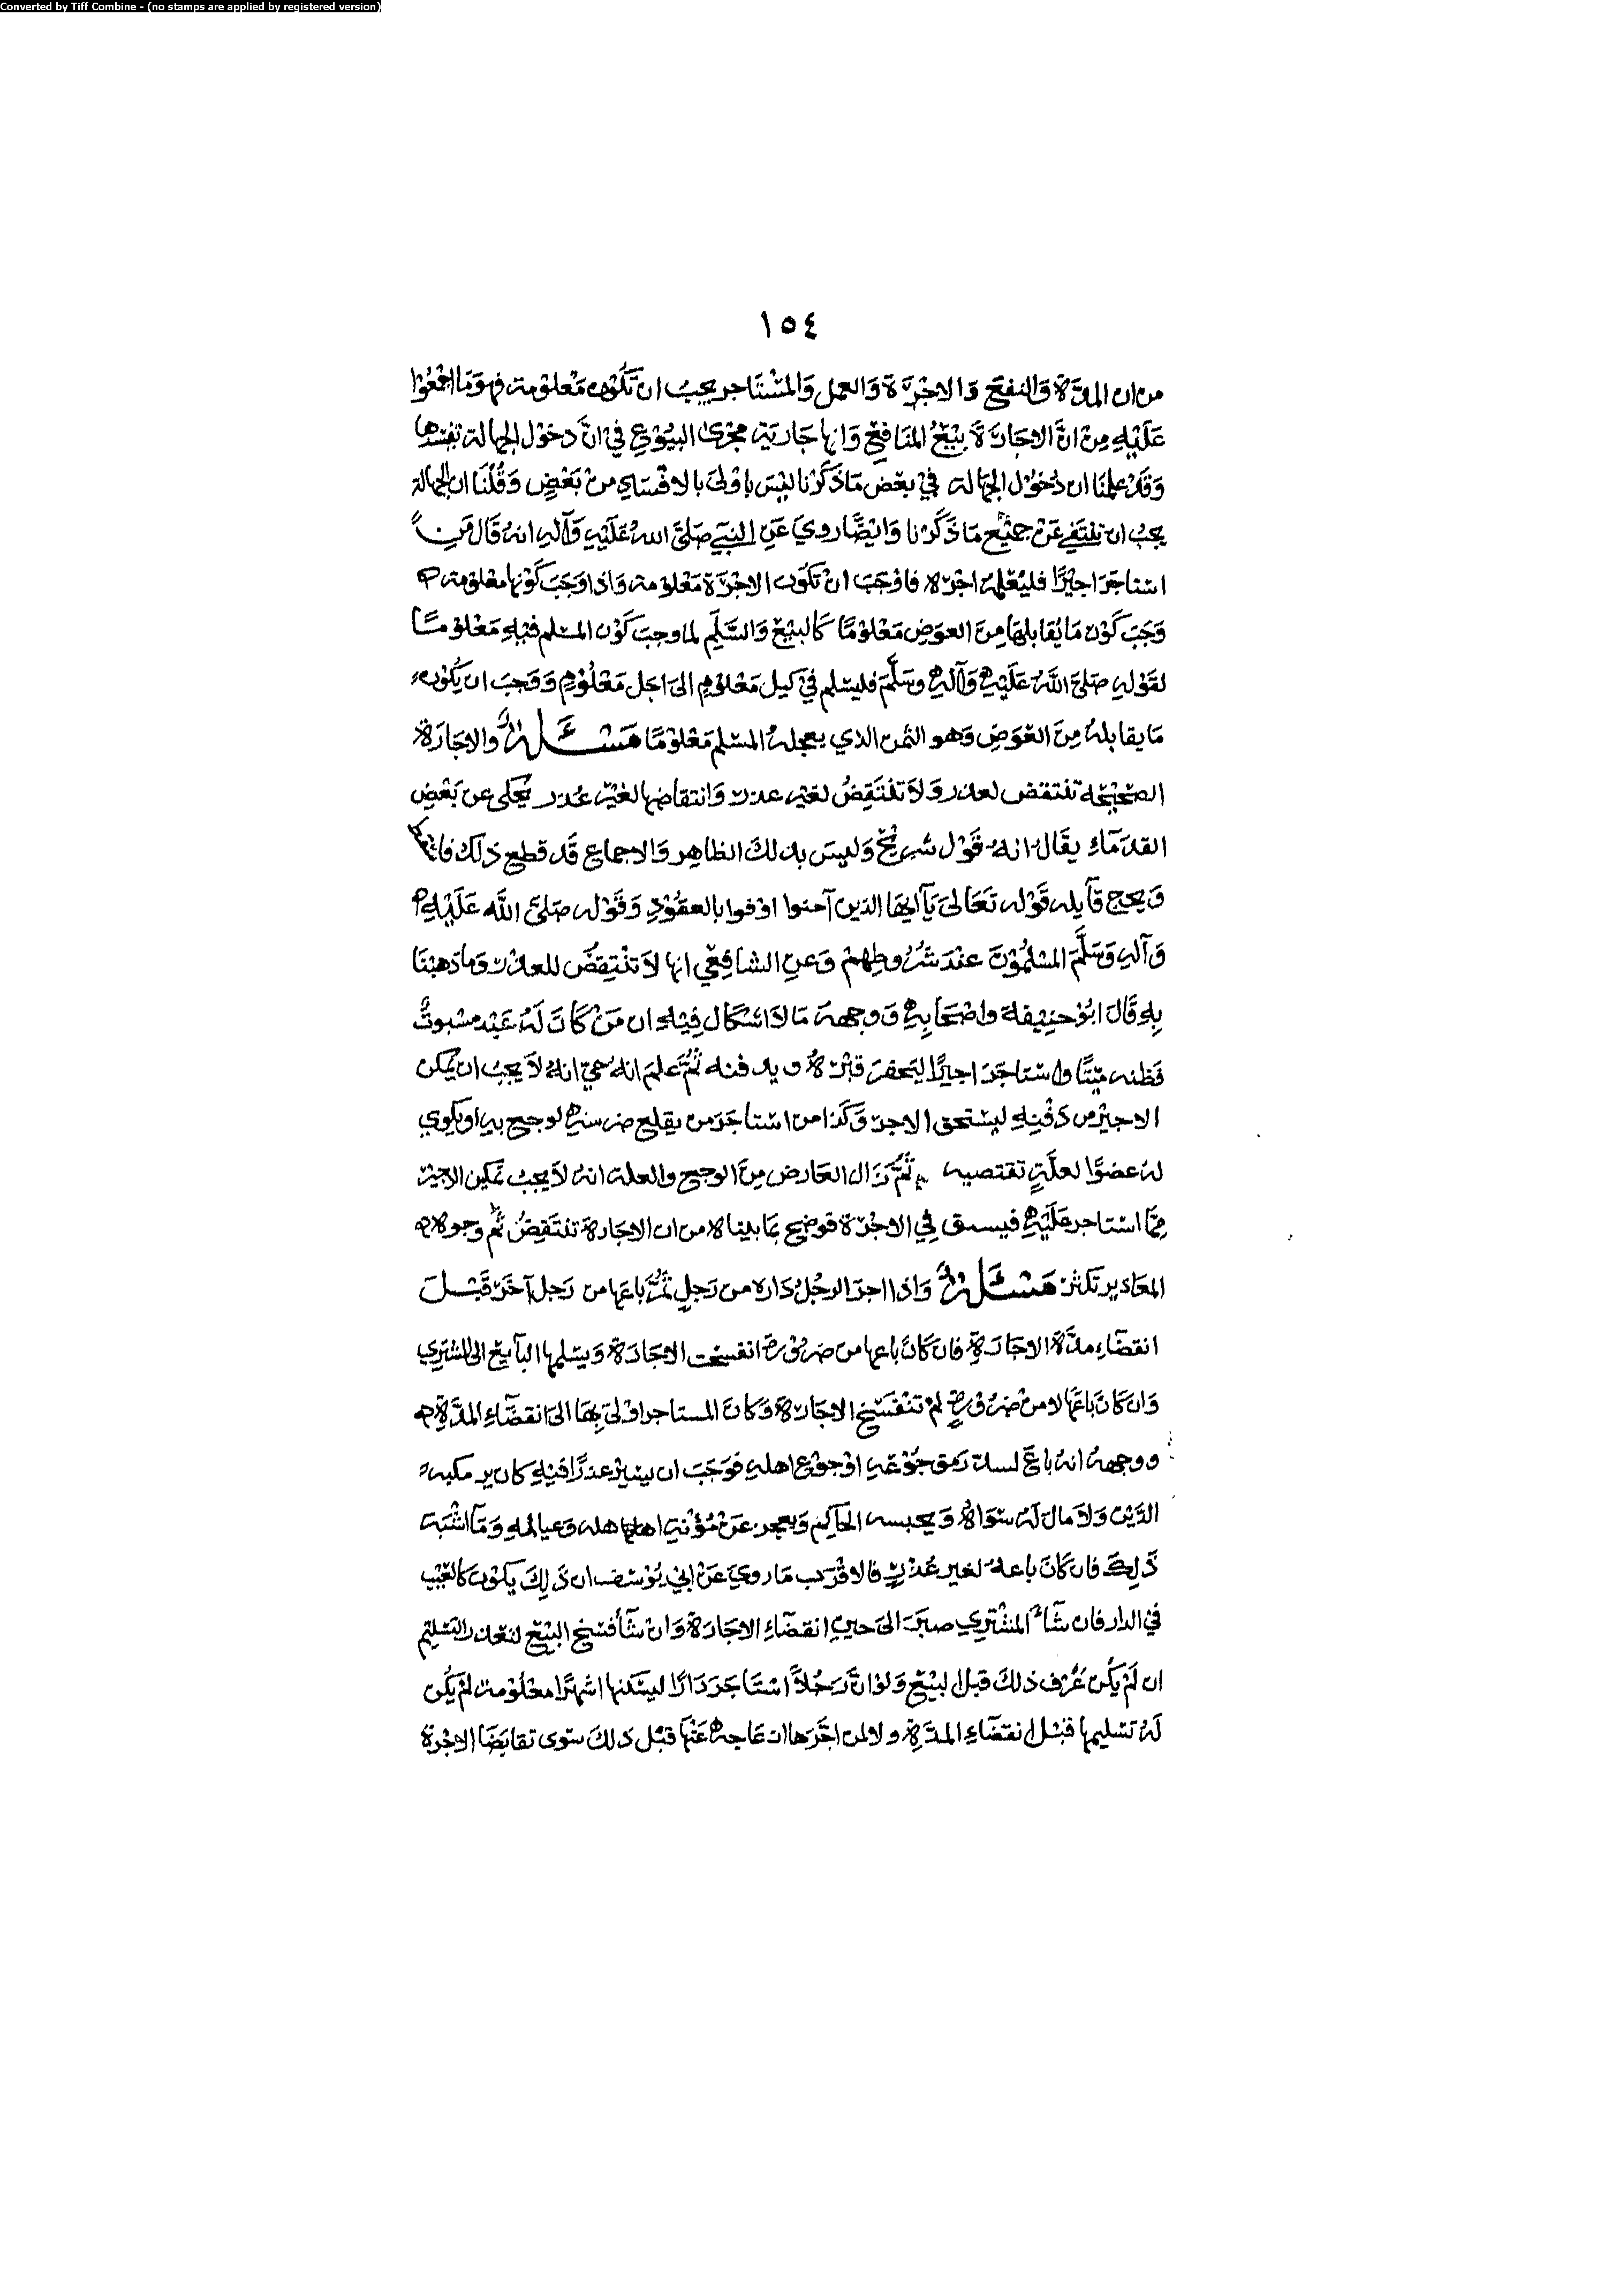 Converted by Tiff Combine - (no stamps are applied by registered version)
١٥٤
من ان المدَّة وَالنفع وَالاجْرَة وَالعمل وَالمسْتَاجر يجبُ ان تَكُون مَعْلومة فهو مَا اجمَعُوْا
عَلَيْهِ مِنْ انَّ الاجَارَة بَيْعُ المنَافِع وَانها جَارية مجْرى البيُوْع فِيْ انَّ دخوْل الجهالة تفسدها
وَقدْ علمْنَا ان دُخوْل الجهَالة فيْ بعْض مَا ذكَرْنا ليْسَ باوْلىَ بالافْسَاد منْ بَعْضٍ وَقُلْنَا ان الجهالة
يجبُ ان تنتفي عَنْ جميْع مَا ذكَرْنا وَايْضًا روي عَنِ النبي صَلىَّ الله عَلَيْهِ وَآلهِ انهُ قَال مَنِ
اسْتاجَرَ اجيْرًا فليُعْلمهُ اجْرَه فاوْجَبَ انْ تكوَن الاجْرَة مَعْلومة وَاذا وَجَبَ كَوْنها معْلوْمة
وَجَبَ كَوْن مَا يُقابلهَا مِنَ العوَض مَعْلوْمًا كَالبيْع وَالسَّلَم لما وجبَ كَوْن المسْلم فيْهِ مَعْلوْمًا
لقوْلهِ صَلىَّ اللَّهُ عَلَيْهِ وَآلهِ وسَلَّمَ فليسْلم فيْ كيل مَعْلوْمٍ الىَ اجَل مَعْلُوْمٍ وَوَجبَ ان يكُوْن
مَا يقابلهُ مِنَ العَوَضِ وَهو الثمن الذي يعجلهُ المسْلم مَعْلوْمًا مَسْئَلة وَالاجَارَة
الصَّحيْحَة تنتقض لعذر وَلاَ تنْتَقِضُ لغيْر عذر وَانتقاضها لغيْر عُذر يحْكى عن بَعْض
القدَمَاءِ يقَال انهُ قَوْل شُريْحٍ وَليسَ بذلكَ الظاهِر وَالاجماع قَد قطع ذلكَ
وَيحج قآيله قَوْله تَعَالىَ يَآ ايهَا الذين آمنوا اوْفوا بالعقوْدِ وَقَوْله صَلىَّ اللَّه عَلَيْهِ
وَآلهِ وَسَلَّمَ المسْلمُوْنَ عنْدَ شُرُوطِهمْ وَعنِ الشافِعْي انها لاَ تنْتَقِضُ للعذر وَما ذهبْنَا
بِهِ قَالَ ابُوْ حنِيْفةَ وَاصْحَابهِ وَوجههُ مَا لاَ اشكَال فِيْهِ ان مَنْ كَانَ لهُ عَبْد مسْبوتٌ
فَظنه ميّتًا وَاستاجَرَ اجيرًا ليَحفرَ قبْرَهُ ويدفنه ثُمَّ علمَ انهُ حيّ انهُ لاَ يجبُ ان يمكن
الاجيْر من دَفْنِهِ ليسْتحق الاجر وَكَذا من اسْتاجَرَ من يقلع ضرسَهُ لوجع به او يكوي
لهُ عضوًا لعلَّةٍ تقتضيه ثُمَّ زَال العَارض مِنَ الوجع وَالعله انهُ لاَ يجبُ تمْكين الاجيْر
مِمَّا اسْتاجر عَلَيْهِ فيستحق فيْ الاجْرَة فوَضح بمَا بيناه من ان الاجارة تنتَقِضُ ثم وجوه
المعَاذير تكثر مَسْئَلة وَاذا اجرَ الرجُلُ دَاره من رَجلٍ ثُمَّ باعَها من رَجل آخَر قَبْلَ
انقضَاءِ مدَّة الاجَارَة فان كَانَ باعها من ضرُوْرة انفسَخت الاجَارَة وَيسَلمها البآيع الى المشتري
وَان كَانَ باعَها لا منْ ضرُوْرة لمْ تنْفَسِخ الاجَارَة وَكَانَ المستاجر اوْلىَ بهَا الىَ انقضَاءِ المدَّة
ووجههُ انهُ باعَ لسد رَمق جَوْعَهِ اوْ جوْع اهْلهِ فوَجَبَ ان يصيْر عذرًا فيْهِ كان يركبه
الدَّيْن وَلاَ مال لهُ سوَاهُ وَيحبسه الحَاكم وَيعجز عَنْ مُؤْنةِ اهله وَعياله وَمَآ اشْبَهَ
ذَلِكَ فان كَانَ باعهُ لغير عُذْرٍ فالاقْرَب مَا رويَ عَنْ ابي يوْسُف ان ذَلِكَ يكوْن كَالعَيْب
في الدار فان شَآءَ المشْتري صبَرَ الىَ حيْنِ انقضَآءِ الاجَارَة وَانْ شَآ فسَخ البَيْع لتعذر التسْليم
ان لَمْ يكُن عُرف ذلكَ قبْل البَيْع وَلوْ انَّ رَجُلاً اسْتَاجَرَ دَارًا ليسْكنها اشْهرًا معْلُوْمة لمْ يكُن
لهُ تسْليمها قبْل انقضَآءِ المدَّةِ ولا لمن اجَّرَها ان يخرجه عَنْهَا قبْل ذلكَ سوَى تقابَضَا الاجْرَة